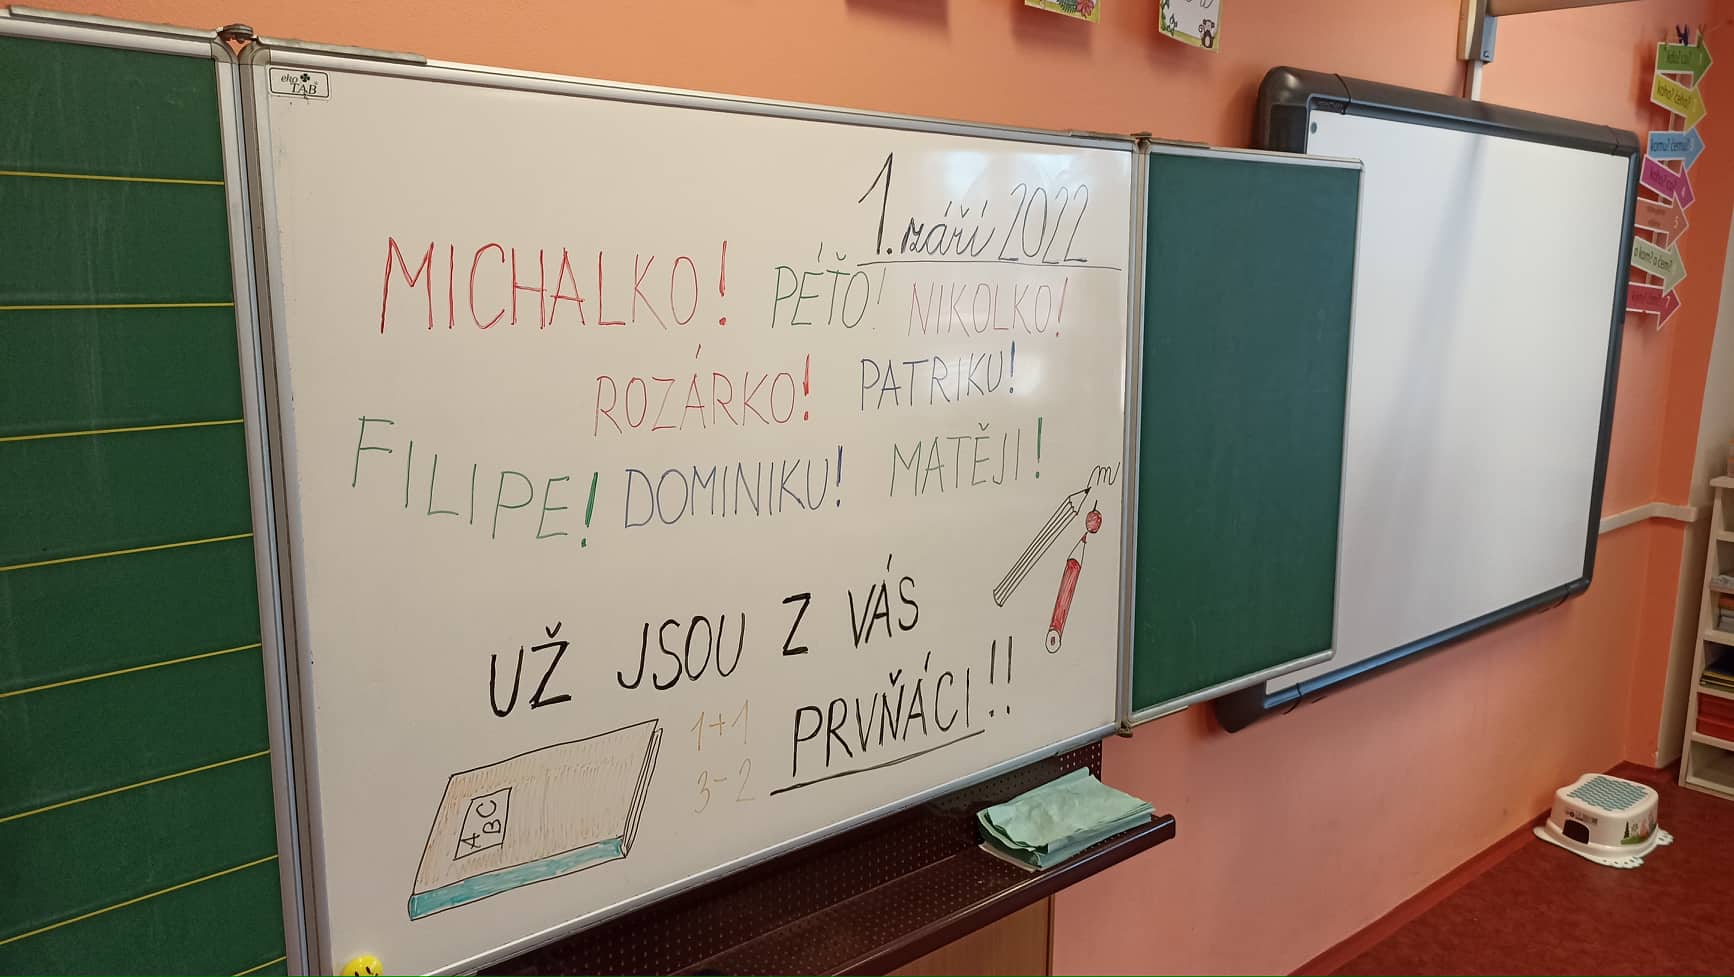 eko
TAB
1. září 2022
MICHALKO! PÉŤO! NIKOLKO!
ROZÁRKO! PATRIKU!
FILIPE! DOMINIKU! MATĚJI!
m
UŽ JSOU Z VÁS
PRVŇÁCI!!
1+1
3-2
A B C
kdo? co? 1
koho? čeho?
komu? čemu?
koho? co? 4
5
o kom? o čem?